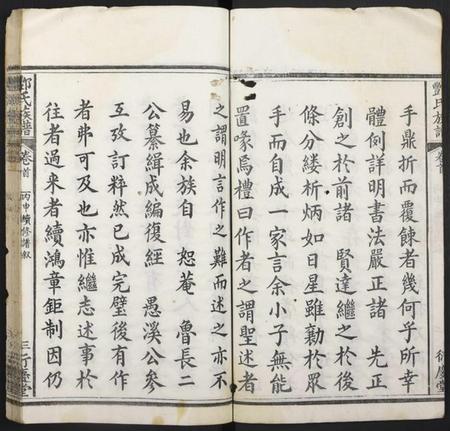 手鼎折而覆餗者幾何乎所幸
體例詳明書法嚴正諸 先正
創之於前諸 賢達繼之於後
條分縷析炳如日星雖勷於眾
手而自成一家言余小子無能
置喙焉禮曰作者之謂聖述者
之謂明言作之難而述之亦不
易也余族自 恕菴 魯長二
公纂緝成編復經 愚溪公參
互攷訂粹然已成完璧後有作
者弗可及也亦惟繼志述事於
往者過來者續鴻章鉅制因仍
氏族譜 卷首 丙申續修譜敘
氏族譜 卷首